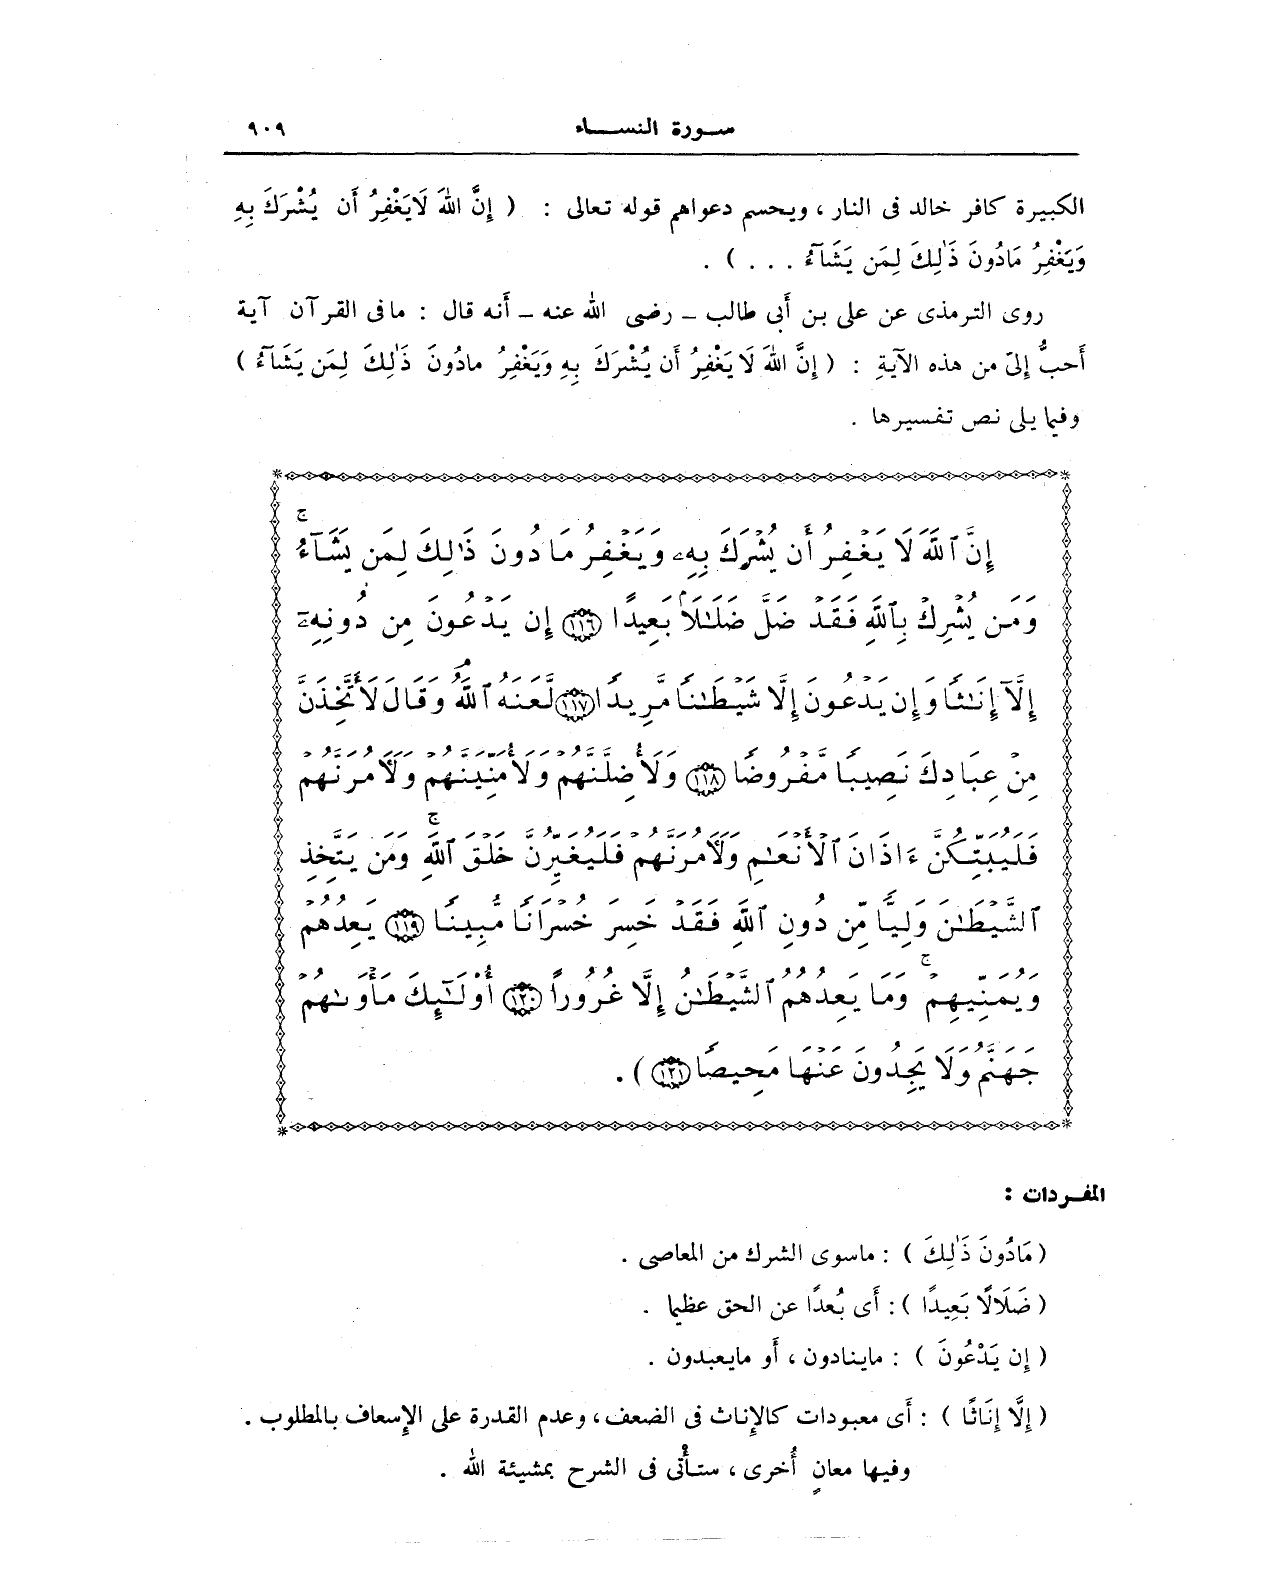 سورة النساء ٩٠٩
الكبيرة كافر خالد فى النار ، ويحسم دعواهم قوله تعالى : ( إِنَّ اللهَ لَايَغْفِرُ أَن يُشْرَكَ بِهِ
وَيَغْفِرُ مَادُونَ ذَٰلِكَ لِمَن يَشَآءُ . . . ) .
روى الترمذى عن على بن أَبى طالب – رضى الله عنه – أَنه قال : مافى القرآن آية
أَحبُّ إِلىَّ من هذه الآيةِ : ( إِنَّ اللهَ لَا يَغْفِرُ أَن يُشْرَكَ بِهِ وَيَغْفِرُ مادُونَ ذَٰلِكَ لِمَن يَشَآءُ )
وفيما يلى نص تفسيرها .
إِنَّ ٱللَّهَ لَا يَغْفِرُ أَن يُشْرَكَ بِهِۦ وَيَغْفِرُ مَا دُونَ ذَٰلِكَ لِمَن يَشَآءُ ۚ
وَمَن يُشْرِكْ بِٱللَّهِ فَقَدْ ضَلَّ ضَلَٰلًا بَعِيدًا ﴿١١٦﴾ إِن يَدْعُونَ مِن دُونِهِۦٓ
إِلَّآ إِنَٰثًا وَإِن يَدْعُونَ إِلَّا شَيْطَٰنًا مَّرِيدًا ﴿١١٧﴾ لَّعَنَهُ ٱللَّهُ ۘ وَقَالَ لَأَتَّخِذَنَّ
مِنْ عِبَادِكَ نَصِيبًا مَّفْرُوضًا ﴿١١٨﴾ وَلَأُضِلَّنَّهُمْ وَلَأُمَنِّيَنَّهُمْ وَلَءَامُرَنَّهُمْ
فَلَيُبَتِّكُنَّ ءَاذَانَ ٱلْأَنْعَٰمِ وَلَءَامُرَنَّهُمْ فَلَيُغَيِّرُنَّ خَلْقَ ٱللَّهِ ۚ وَمَن يَتَّخِذِ
ٱلشَّيْطَٰنَ وَلِيًّا مِّن دُونِ ٱللَّهِ فَقَدْ خَسِرَ خُسْرَانًا مُّبِينًا ﴿١١٩﴾ يَعِدُهُمْ
وَيُمَنِّيهِمْ ۚ وَمَا يَعِدُهُمُ ٱلشَّيْطَٰنُ إِلَّا غُرُورًا ﴿١٢٠﴾ أُوْلَٰٓئِكَ مَأْوَىٰهُمْ
جَهَنَّمُ وَلَا يَجِدُونَ عَنْهَا مَحِيصًا ﴿١٢١﴾ ) .
المفردات :
( مَادُونَ ذَٰلِكَ ) : ماسوى الشرك من المعاصى .
( ضَلَالًا بَعِيدًا ) : أَى بُعدًا عن الحق عظيما .
( إِن يَدْعُونَ ) : ماينادون ، أَو مايعبدون .
( إِلَّا إِنَاثًا ) : أَى معبودات كالإِناث فى الضعف ، وعدم القدرة على الإِسعاف بالمطلوب .
وفيها معانٍ أُخرى ، ستأْتى فى الشرح بمشيئة الله .